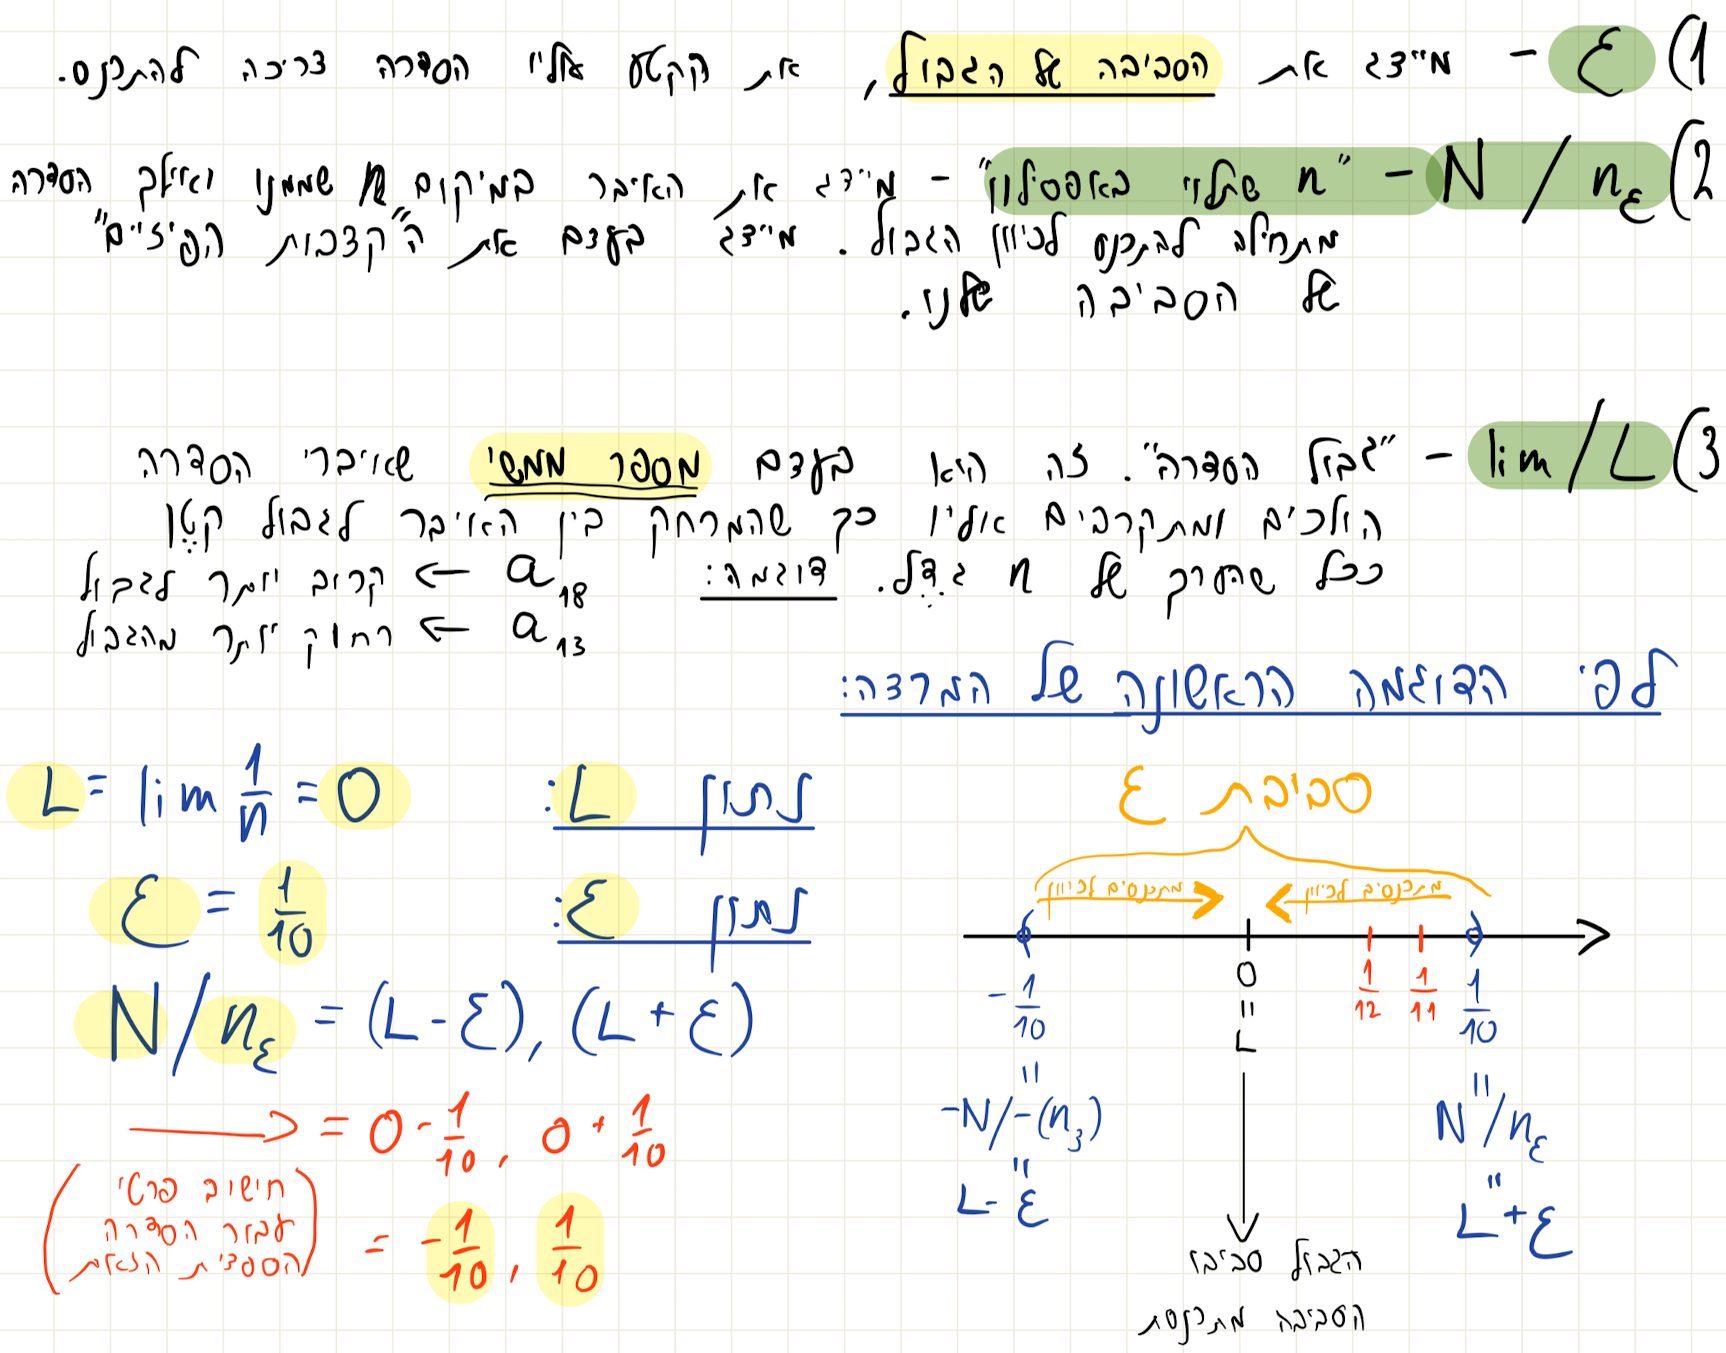 1) ε - מייצג את הסביבה של הגבול, את הקטע אליו הסדרה צריכה להתכנס.
2) N / nε - "n שתלוי באפסילון" - מייצג את האיבר במיקום n שממנו ואילך הסדרה
מתחילה להתכנס לכיוון הגבול. מייצג בעצם את ה"קצבות הפיזיים"
של הסביבה שלנו.
3) lim/L - "גבול הסדרה". זה הוא בעצם מספר ממשי שאיברי הסדרה
הולכים ומתקרבים אליו כך שהמרחק בין האיבר לגבול קטן
ככל שהערך של n גדל. דוגמה: a₁₈ ← קרוב יותר לגבול
a₁₃ ← רחוק יותר מהגבול
לפי הדוגמה הראשונה של המרצה:
נתון L: L = lim 1/n = 0
נתון ε: ε = 1/10
N/nε = (L-ε), (L+ε)
→ = 0 - 1/10, 0 + 1/10
(חישוב פרטי
עבור הסדרה
הספציפית הזאת)
= -1/10, 1/10
סביבת ε
מתכנסים לכיוון
מתכנסים לכיוון
-1/10 0 1/12 1/11 1/10
" L
" "
-N/-(nε) N/nε
" "
L-ε L+ε
הגבול סביבו
הסביבה מתכנסת